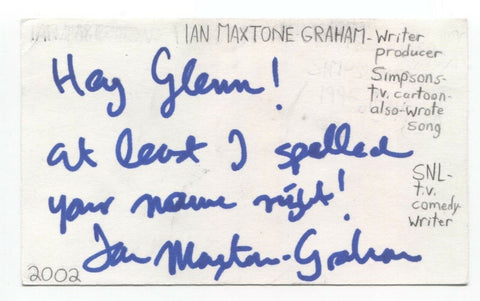 IAN MAXTONE GRAHAM-Writer
producer
Simpsons-
t.v. cartoon-
also-wrote
song
SNL-
t.v.
comedy
writer
Hey Glenn!
at least I spelled
your name right!
Ian Maxtone-Graham
2002